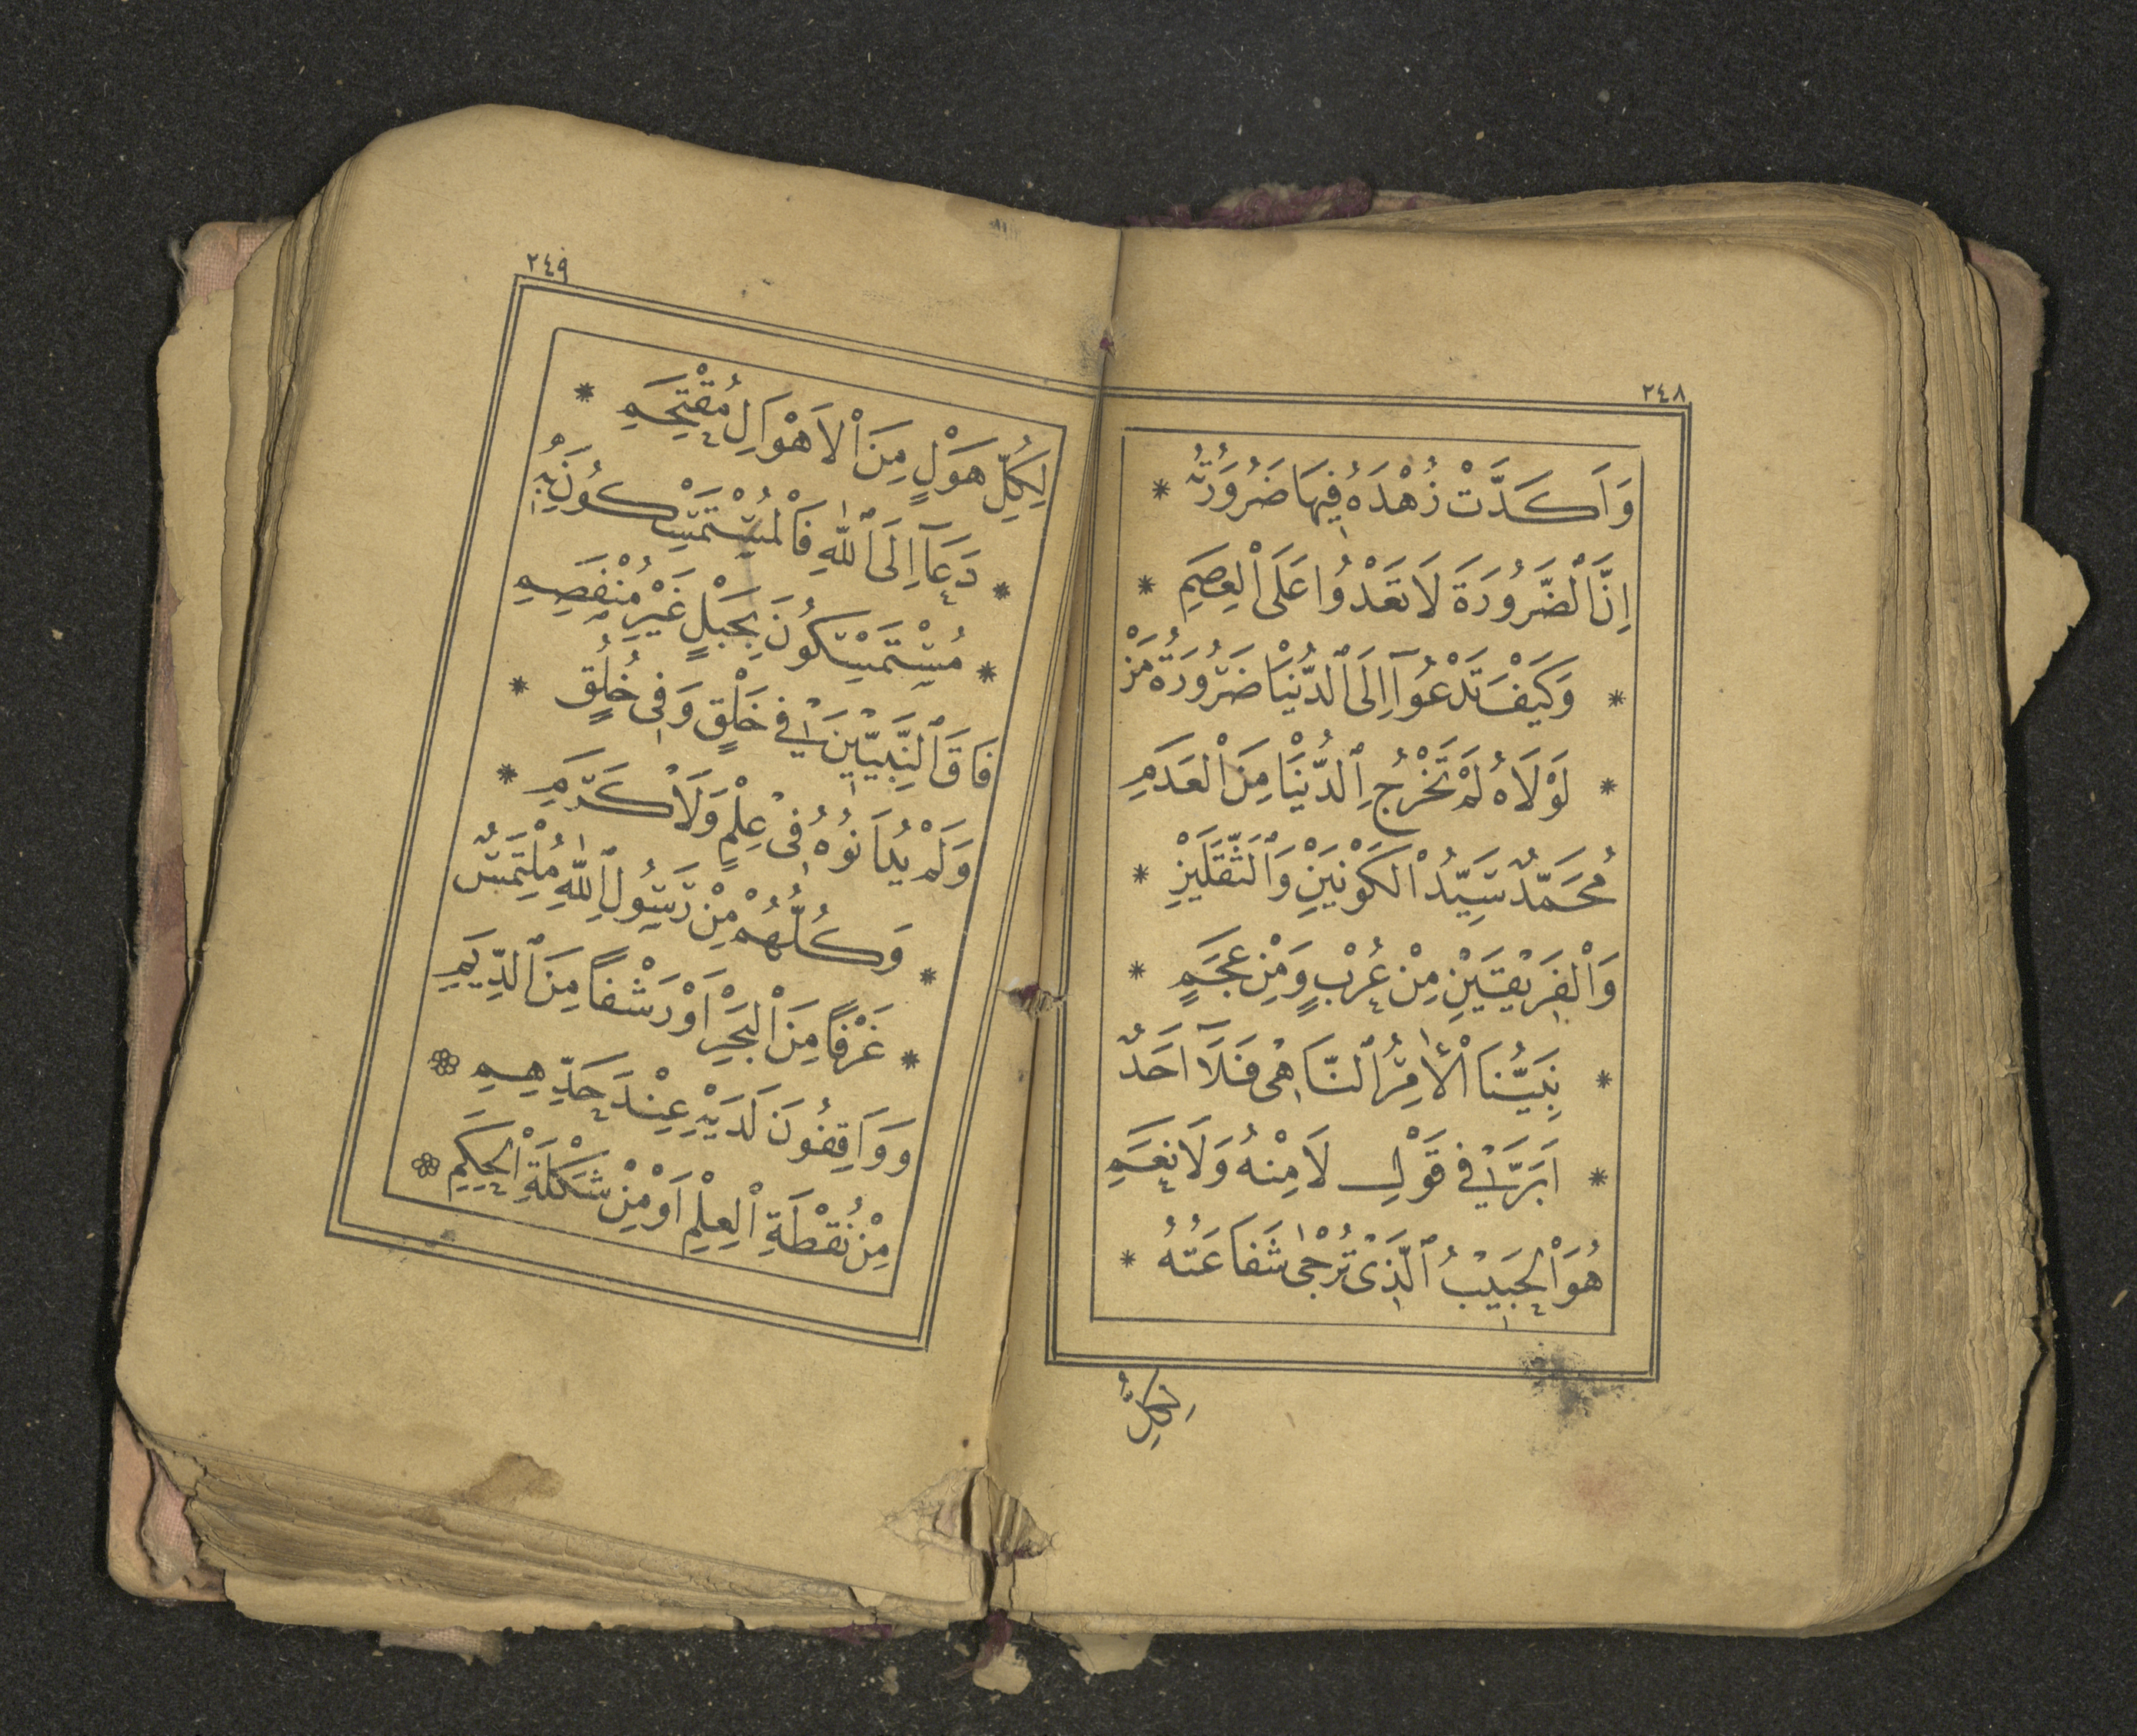 ٢٤٨
وَاَكَدَّتْ زُهْدَهُ فِيهَا ضَرُورَتُهُ *
اِنَّ ٱلضَّرُورَةَ لَا تَعْدُوا عَلَى ٱلْعِصَمِ *
* وَكَيْفَ تَدْعُوآ اِلَى ٱلدُّنْيَا ضَرُورَةُ مَنْ
* لَوْلَاهُ لَمْ تَخْرُجِ ٱلدُّنْيَا مِنَ ٱلْعَدَمِ
مُحَمَّدٌ سَيِّدُ ٱلْكَوْنَيْنِ وَٱلثَّقَلَيْنِ *
وَٱلْفَرِيقَيْنِ مِنْ عُرْبٍ وَمِنْ عَجَمٍ *
* نَبِيُّنَا ٱلْاٰمِرُ ٱلنَّاهِى فَلَآ اَحَدٌ
* اَبَرَّ فِى قَوْلِ لَا مِنْهُ وَلَا نَعَمِ
هُوَ ٱلْحَبِيبُ ٱلَّذِى تُرْجٰى شَفَاعَتُهُ *
لِكُلِّ
٢٤٩
لِكُلِّ هَوْلٍ مِنَ ٱلْاَهْوَالِ مُقْتَحِمِ *
* دَعَآ اِلَى ٱللّٰهِ فَٱلْمُسْتَمْسِكُونَ بِهِ
* مُسْتَمْسِكُونَ بِحَبْلٍ غَيْرِ مُنْفَصِمِ
فَاقَ ٱلنَّبِيّٖينَ فِى خَلْقٍ وَفِى خُلُقٍ *
وَلَمْ يُدَانُوهُ فِى عِلْمٍ وَلَا كَرَمِ *
* وَكُلُّهُمْ مِنْ رَسُولِ ٱللّٰهِ مُلْتَمِسٌ
* غَرْفًا مِنَ ٱلْبَحْرِ اَوْ رَشْفًا مِنَ ٱلدِّيَمِ
وَوَاقِفُونَ لَدَيْهِ عِنْدَ حَدِّهِمِ ❀
مِنْ نُقْطَةِ ٱلْعِلْمِ اَوْ مِنْ شَكْلَةِ ٱلْحِكَمِ ❀